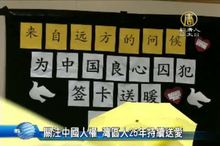 新唐人
来自远方的问候
为中国良心囚犯
签卡送暖
關注中國人權 灣區人25年持續送愛